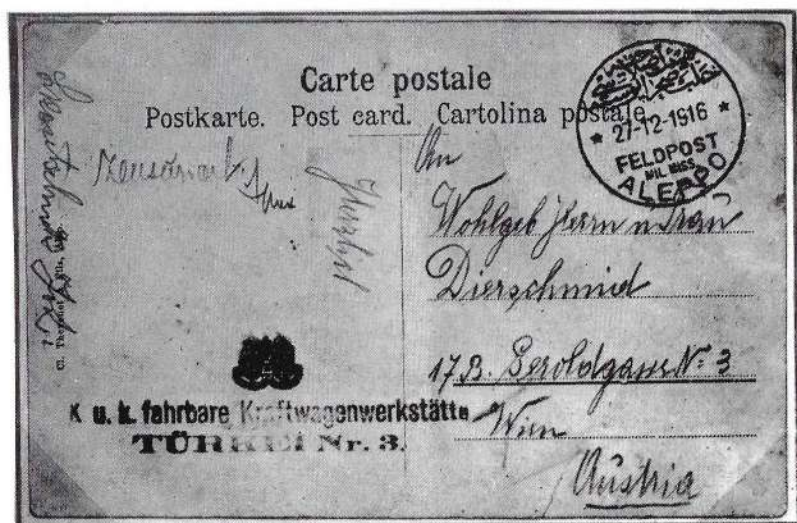 Carte postale
Postkarte. Post card. Cartolina postale
27-12-1916
FELDPOST
MIL. MISS.
ALEPPO
Zensuriert
An
Wohlgeb Herrn u Frau
Dierschmied
17 B. Geroldgasse No. 3
Wien
Austria
K u. k. fahrbare Kraftwagenwerkstätte
TÜRKEI Nr. 3.